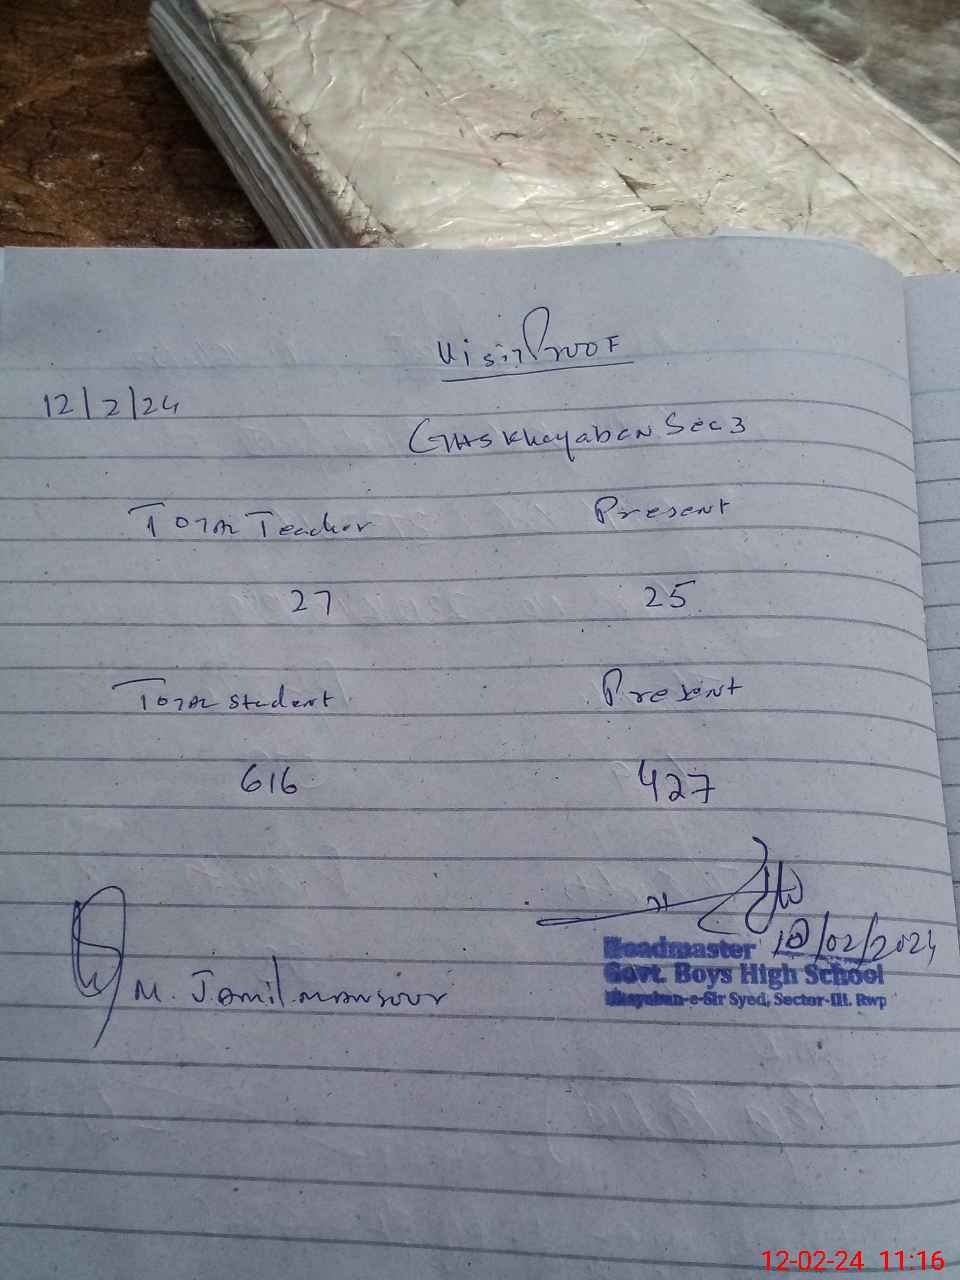 Visit Proof
12/2/24
GHS Khayaban Sec 3
Total Teacher Present
27 25
Total Student Present
616 427
12/02/2024
Headmaster
Govt. Boys High School
Khayaban-e-Sir Syed, Sector-III. Rwp
M. Jamil mansour
12-02-24 11:16